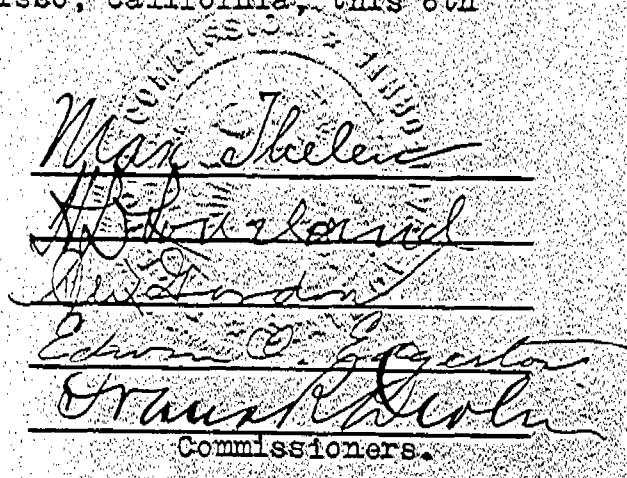 isco, California, this 8th
COMMISSION
Max Thelen
H D Loveland
Alex Gordon
Edwin O. Edgerton
Frank R Devlin
Commissioners.